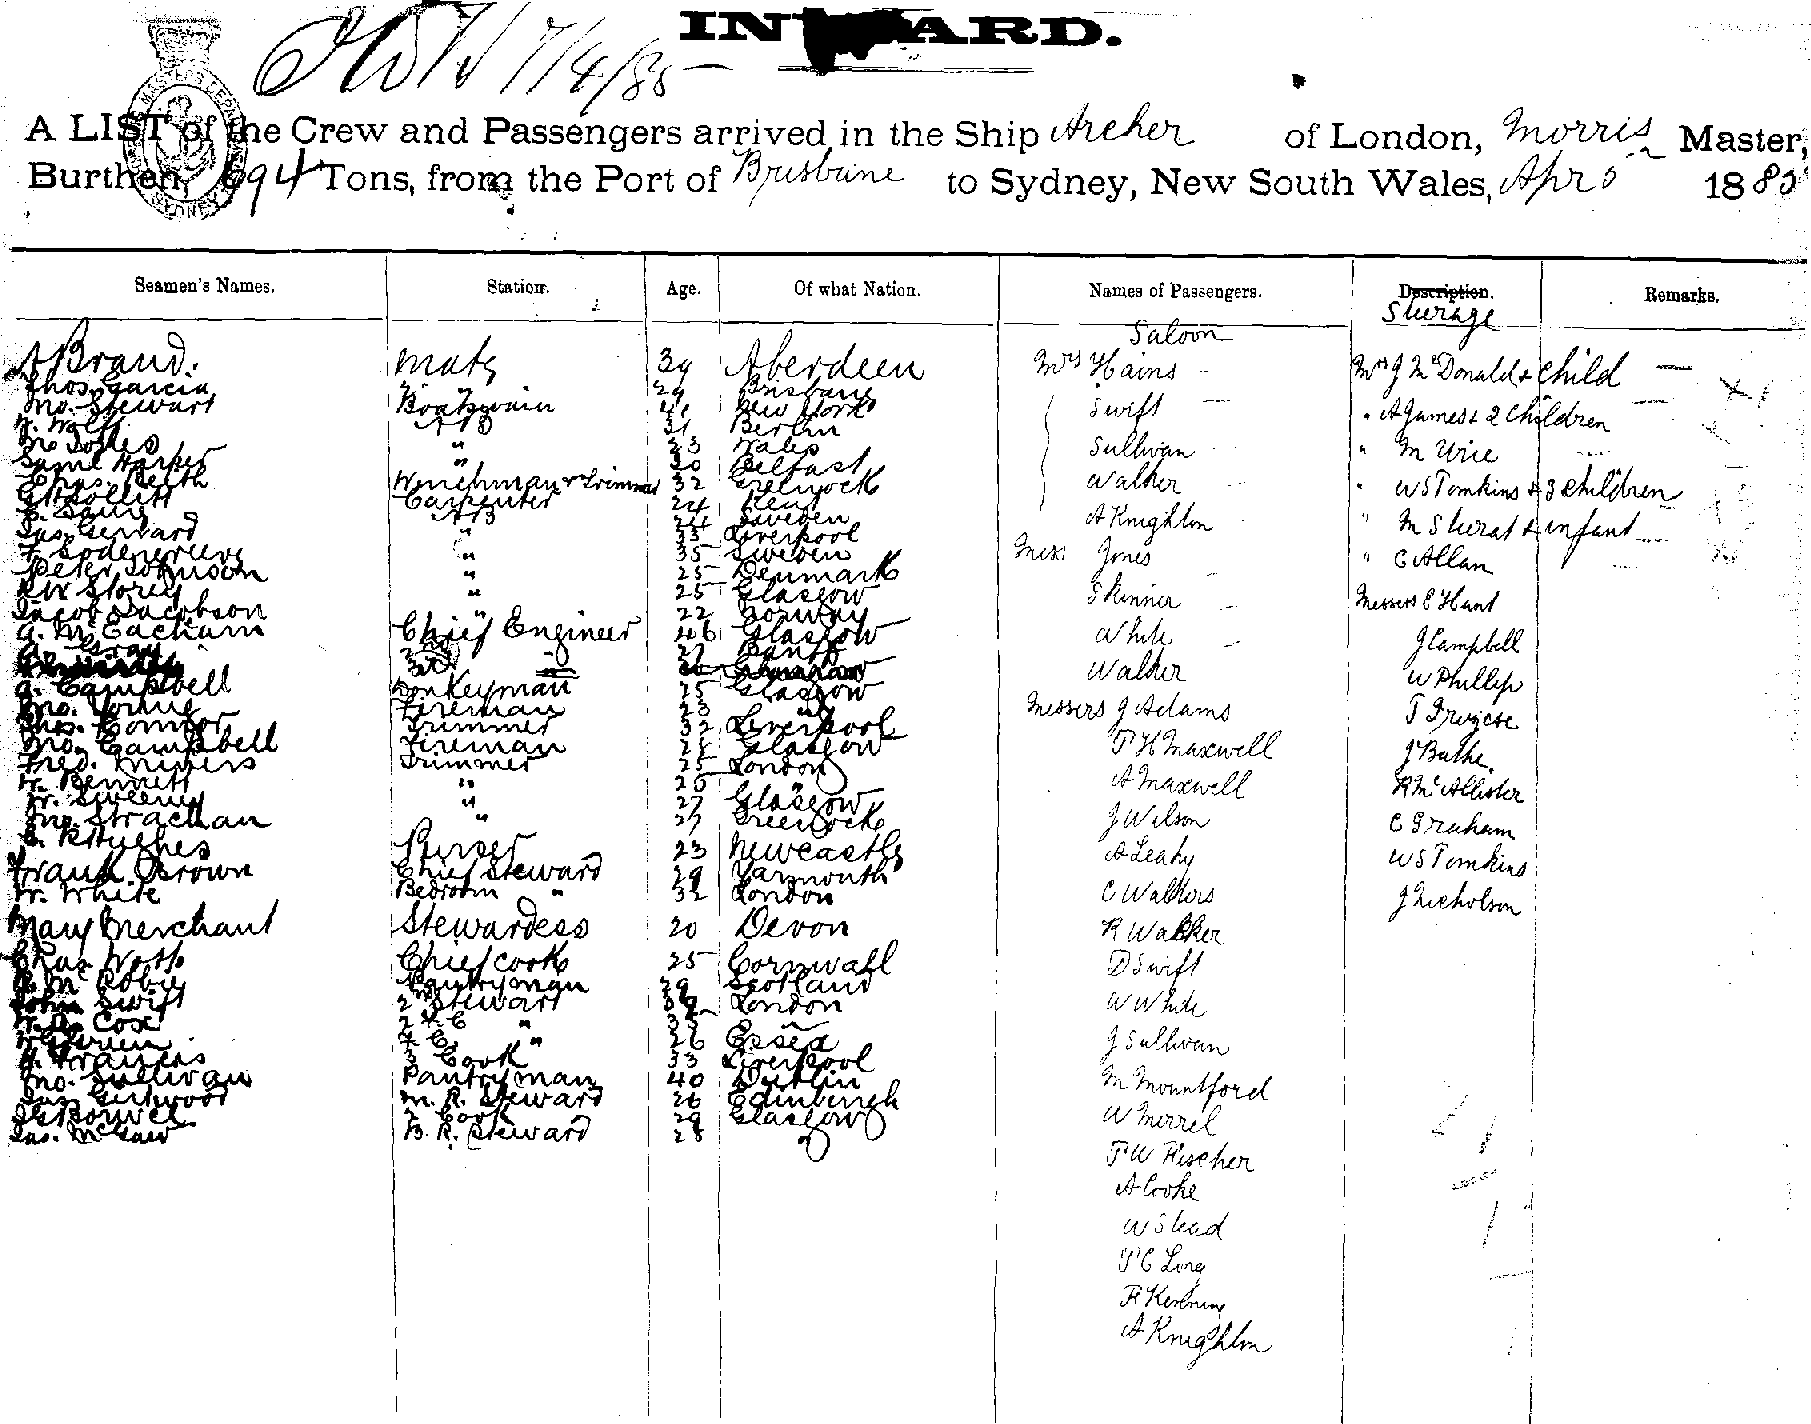 INWARD.
7/4/85
A LIST of the Crew and Passengers arrived in the Ship Archer of London, Morris Master,
Burthen, 694 Tons, from the Port of Brisbane to Sydney, New South Wales, Apr 5 1885
Seamen's Names. Station. Age. Of what Nation. Names of Passengers. Description. Remarks.
Saloon Steerage
A Brand. Mate 39 Aberdeen
Thos. Garcia 29 Brisbane
Jno. Stewart Boatswain 41 New York
W. Wolff AB 31 Berlin
Jno Jones " 23 Wales
Saml Harper " 30 Belfast
Chas. Keith Winchman & Trimmer 32 Greenock
Carpenter 24 Kent
AB 24 Sweden
Jas. Gerrard " 33 Liverpool
" 35 Sweden
Peter Johnson " 25 Denmark
Storey " 25 Glasgow
Jacob Jacobson " 22 Norway
A. McEacham Chief Engineer 46 Glasgow
Gray 2nd " 27 Banff
3rd "
A. Campbell Donkeyman 25 Glasgow
Jno. Young Fireman 23 "
Thos. Connor Trimmer 32 Liverpool
Jno. Campbell Fireman 28 Glasgow
Fred. Trimmer 25 London
W. Bennett " 26 "
W. Sweeney " 27 Glasgow
Jno. Strachan " 27 Greenock
Hughes Purser 23 Newcastle
Frank Brown Chief Steward 29 Yarmouth
W. White Bedroom " 32 London
Mary Merchant Stewardess 20 Devon
Chas. Chief Cook 25 Cornwall
Pantryman 29 Scotland
John Swift 2nd Stewart London
Cox "
" 26 Essex
Francis 3 Cook 33 Liverpool
Jno. Sullivan Pantryman 40 Dublin
Jas. Girdwood M. R. Steward 26 Edinburgh
2 Cook 29 Glasgow
Jas. McGaw B. R. Steward 28 "
Mrs Hains
Swift
Sullivan
Walker
A Knighton
Miss Jones
Skinner
White
Walker
Messers J Adams
T H Maxwell
A Maxwell
J Wilson
A Leahy
C Walters
R Walker
D Swift
W White
J Sullivan
M Mountford
W Mirrel
F W Fischer
A Cooke
W Stead
T C Long
A Knighton
Mrs J McDonald & child
" A James & 2 children
" M Urie
" W S Tomkins & 3 children
" M Sherat & infant
" C Allan
Messers C Hunt
J Campbell
W Phillip
J Buthe
R McAllister
C Graham
W S Tomkins
J Nicholson